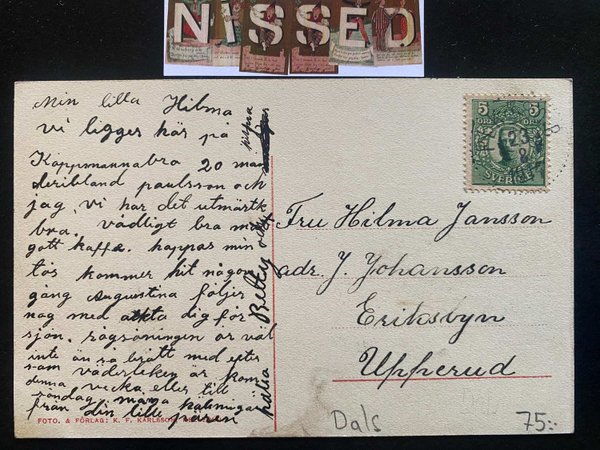 NISSED
Min lilla Hilma
vi ligger här på
Köppmannabro 20 man
deribland paulsson och
jag, vi har det utmärkt
bra. vådligt bra mat
gott kaffe. hoppas min
tös kommer hit någon
gång Augustina följer
nog med akta dig för
sjön. rågsöningen är väl
inte än så brått med efter
som väderleken är kom
denna vecka eller till
söndag. många hälsningar
från din lille
Betty
5 5
ÖRE ÖRE
SVERIGE
23
8
Fru Hilma Jansson
adr. J. Johansson
Eriksbyn
Upperud
Dals
75:-
FOTO. & FÖRLAG: K. F. KARLSSON,